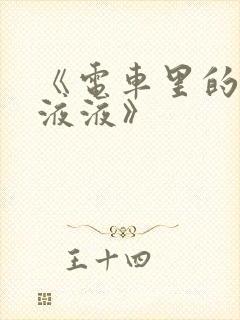 《電車里的
液液》
王十四